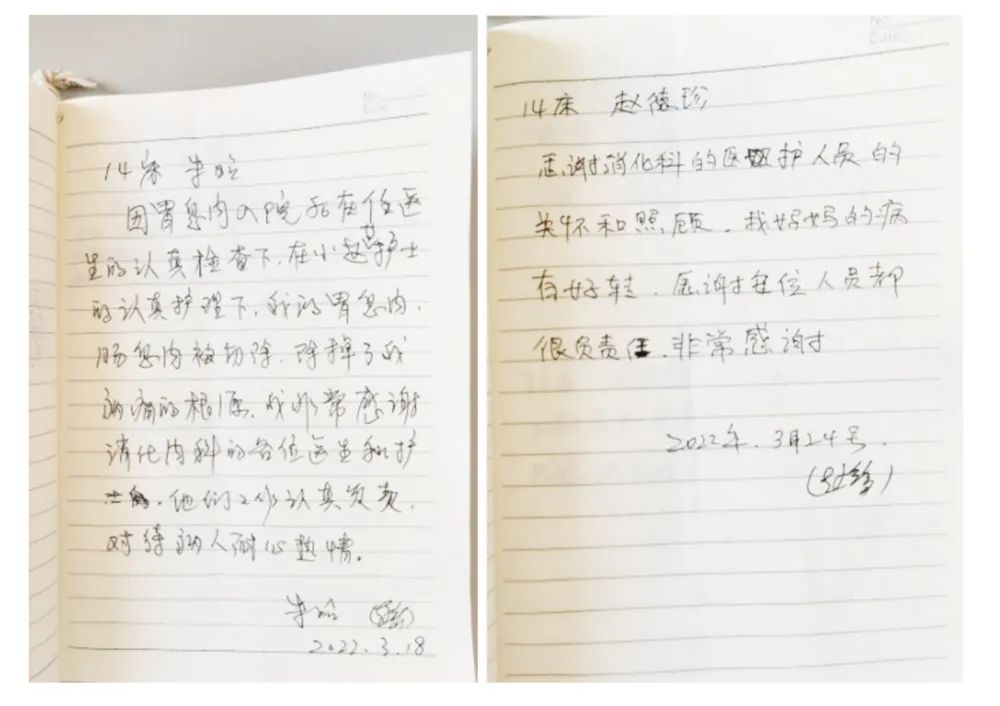 No
Date
14床 朱
因胃息肉入院后在任医
生的认真检查下,在小赵护士
的认真护理下,我的胃息肉,
肠息肉被切除,除掉了我
病痛的根源,我非常感谢
消化内科的各位医生和护
士,他们工作认真负责,
对待病人耐心热情。
朱
2022.3.18
No
Date
14床 赵德珍
感谢消化科的医护人员的
关怀和照顾。我妈妈的病
有好转,感谢每位人员都
很负责任,非常感谢
2022年.3月24号.